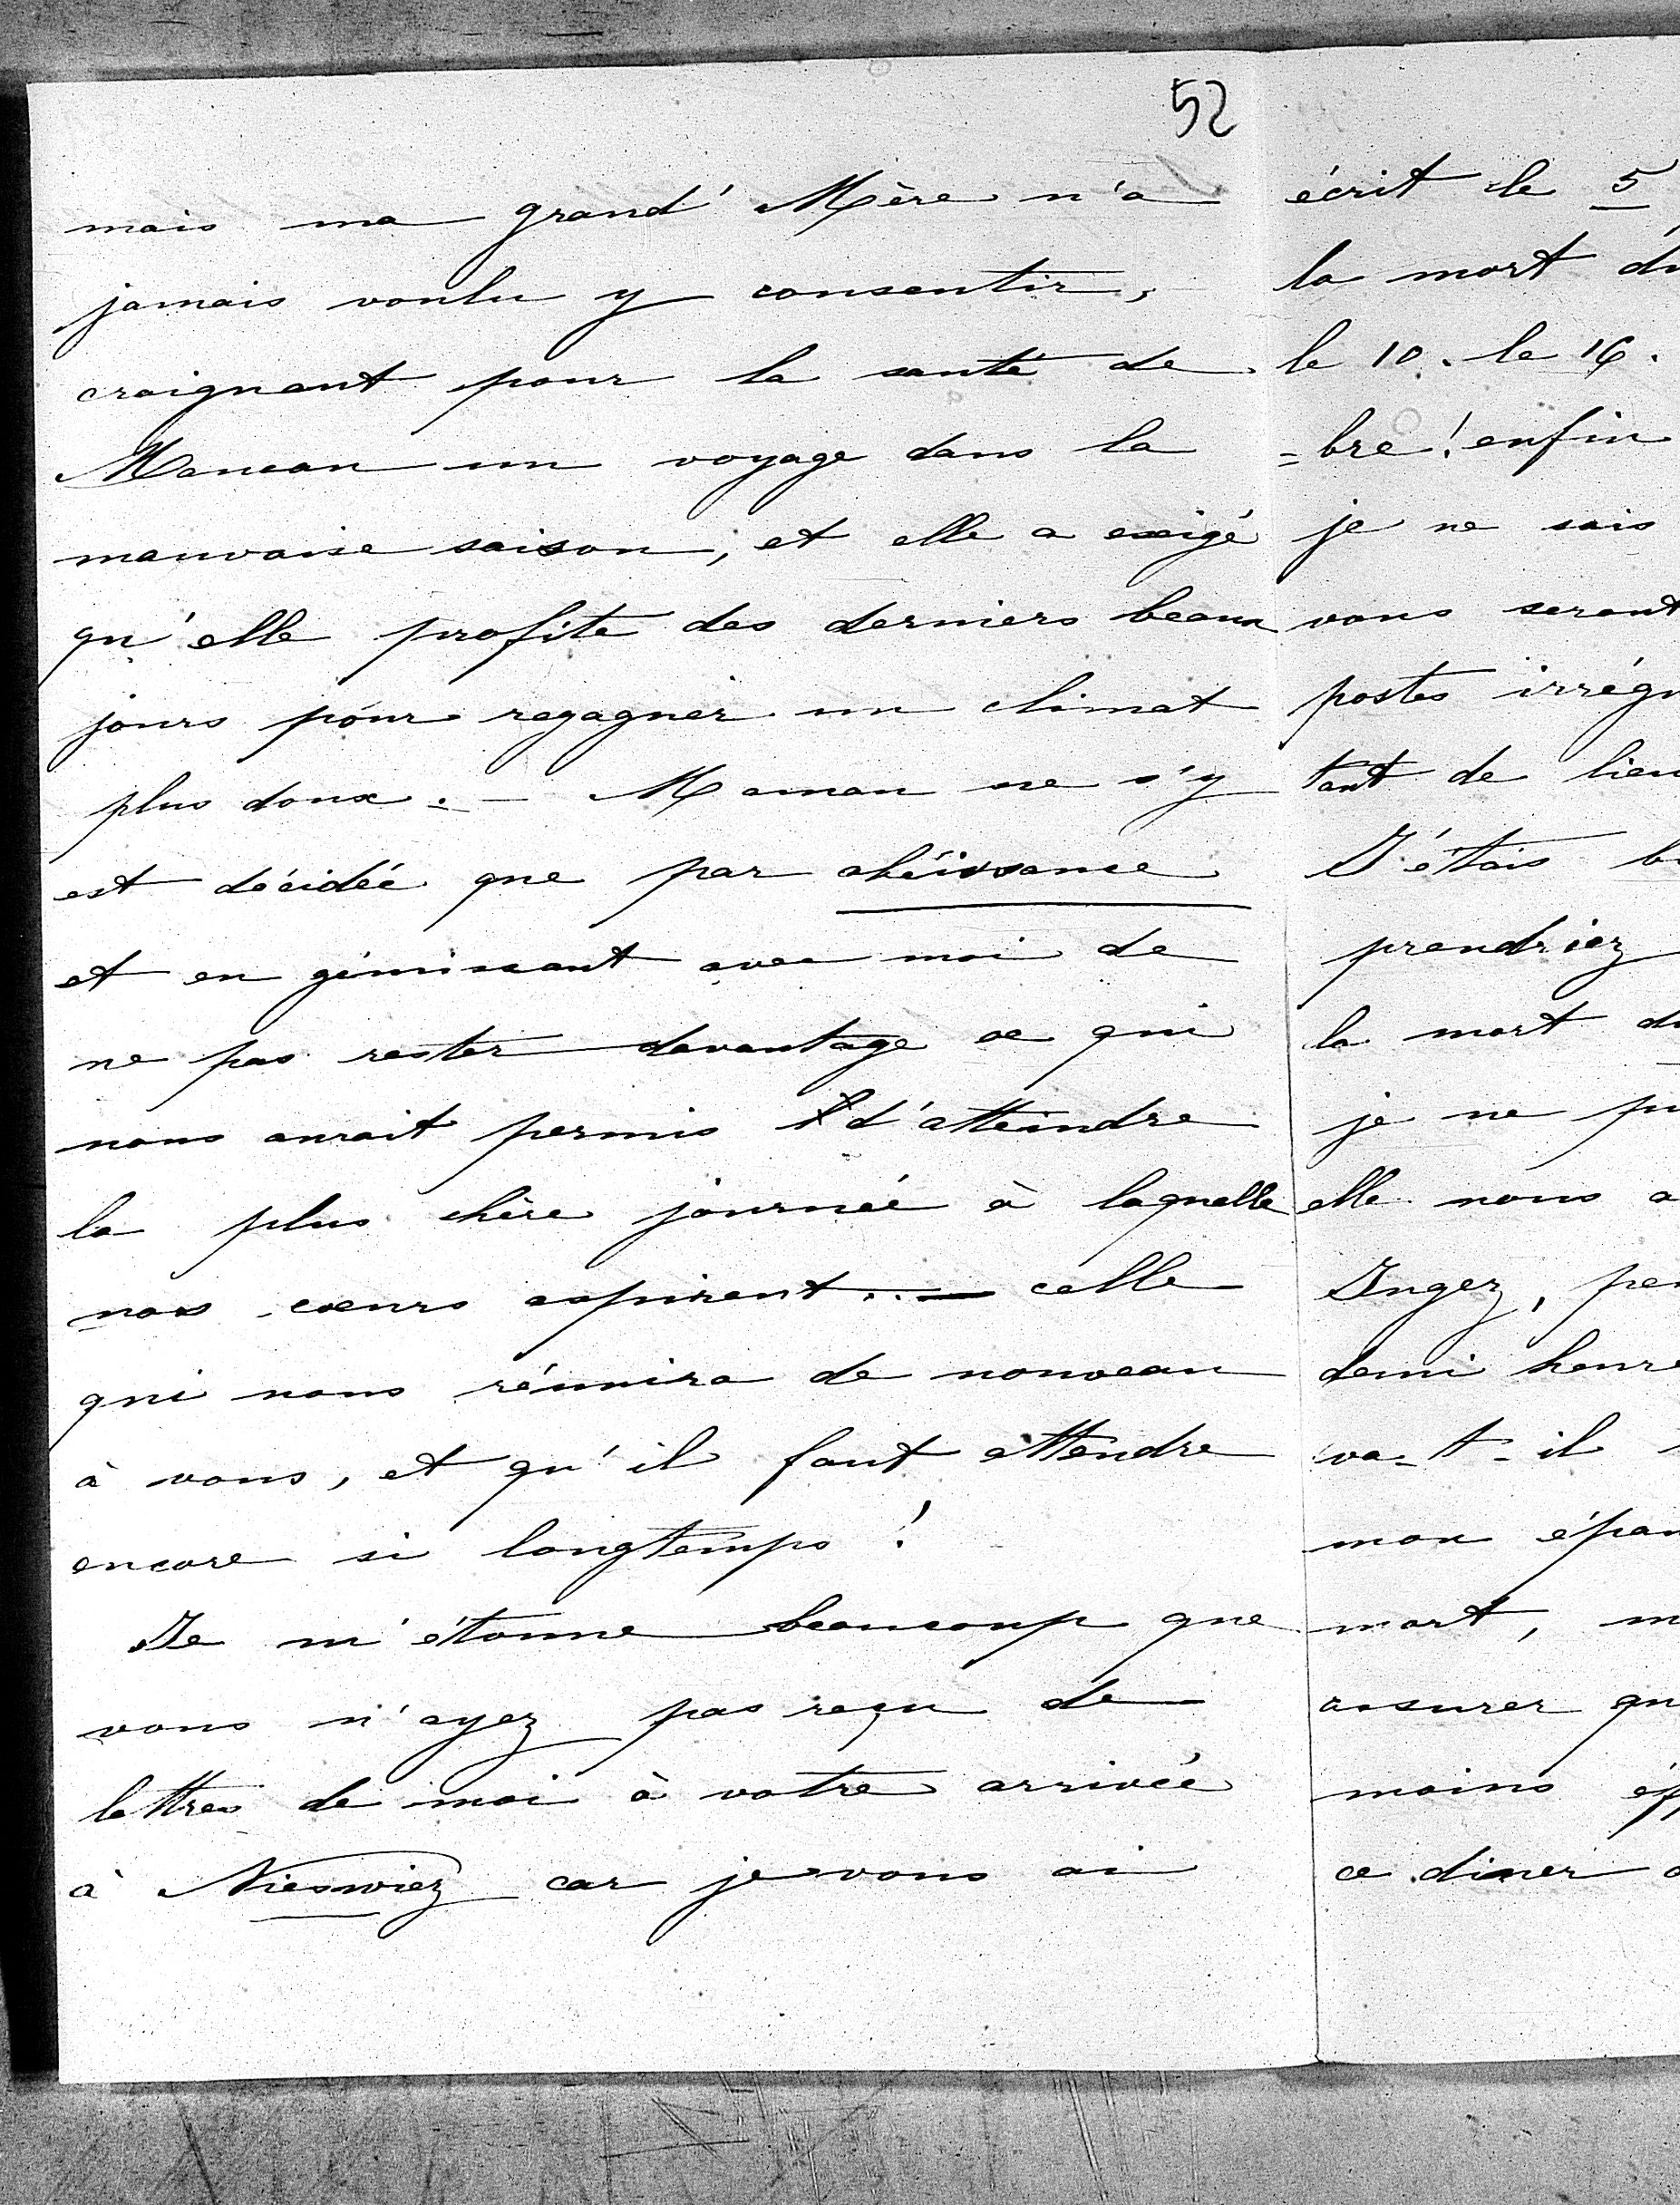 52
mais ma grand' Mère n'a
jamais voulu y consentir,
craignant pour la santé de
Maman un voyage dans la
mauvaise saison, et elle a exigé
qu'elle profite des derniers beaux
jours pour regagner un climat
plus doux. — Maman ne s'y
est décidée que par obéissance
et en gémissant avec moi de
ne pas rester davantage ce qui
nous aurait permis d'atteindre
la plus chère journée à laquelle
nos cœurs aspirent... — celle
qui nous réunira de nouveau
à vous, et qu'il faut attendre
encore si longtemps !
Je m'étonne beaucoup que
vous n'ayez pas reçu de
lettres de moi à votre arrivée
à Nieswiez car je vous ai
écrit le 5
la mort du
le 10. le 16.
=bre ! enfin
je ne sais
vous seront
postes irrégu
tant de lieu
J'étais b
prendriez
la mort d
je ne pu
elle nous a
Jugez, pe
demi heure
va-t-il
mon épou
mort, m
assurer qu
moins ép
ce diner